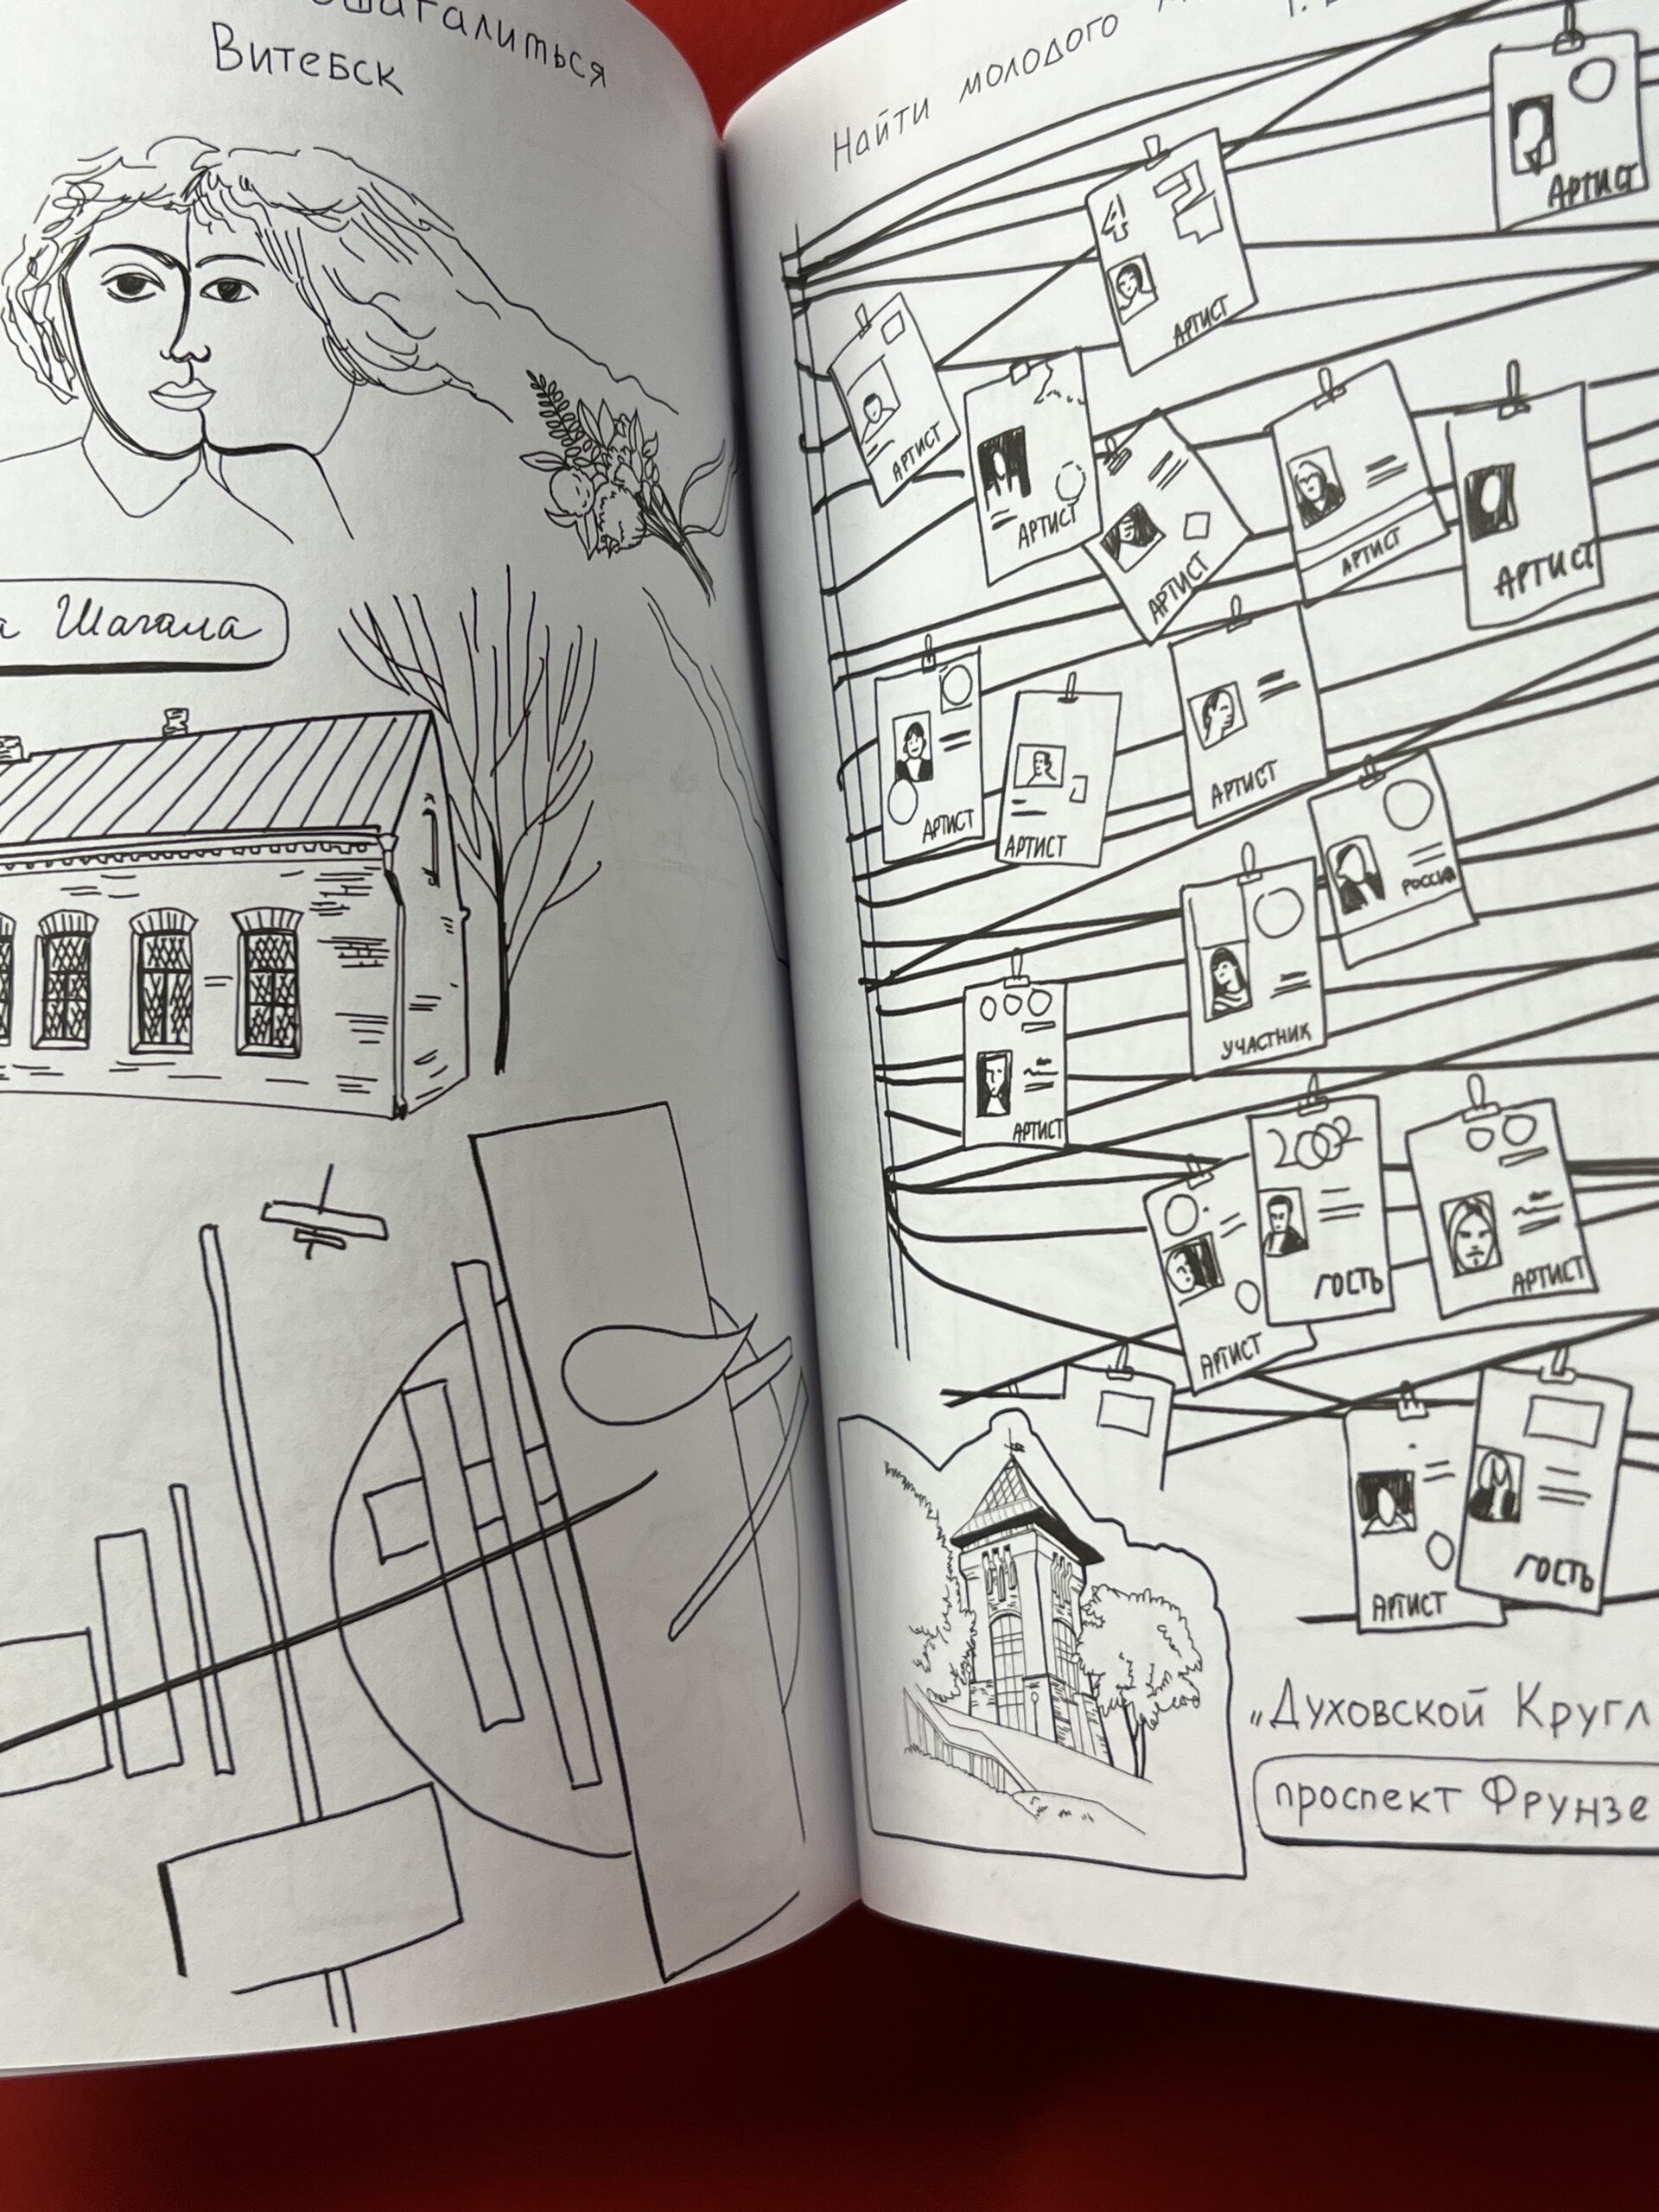 Витебск
а Шагала
Найти молодого
АРТИСТ
4
АРТИСТ
АРТИСТ
АРТИСТ
АРТИСТ
АРТИСТ
АРТИСТ
АРТИСТ
АРТИСТ
АРТИСТ
РОССИЯ
АРТИСТ
УЧАСТНИК
АРТИСТ
2002
ГОСТЬ
АРТИСТ
АРТИСТ
ГОСТЬ
АРТИСТ
„Духовской Кругл
проспект Фрунзе